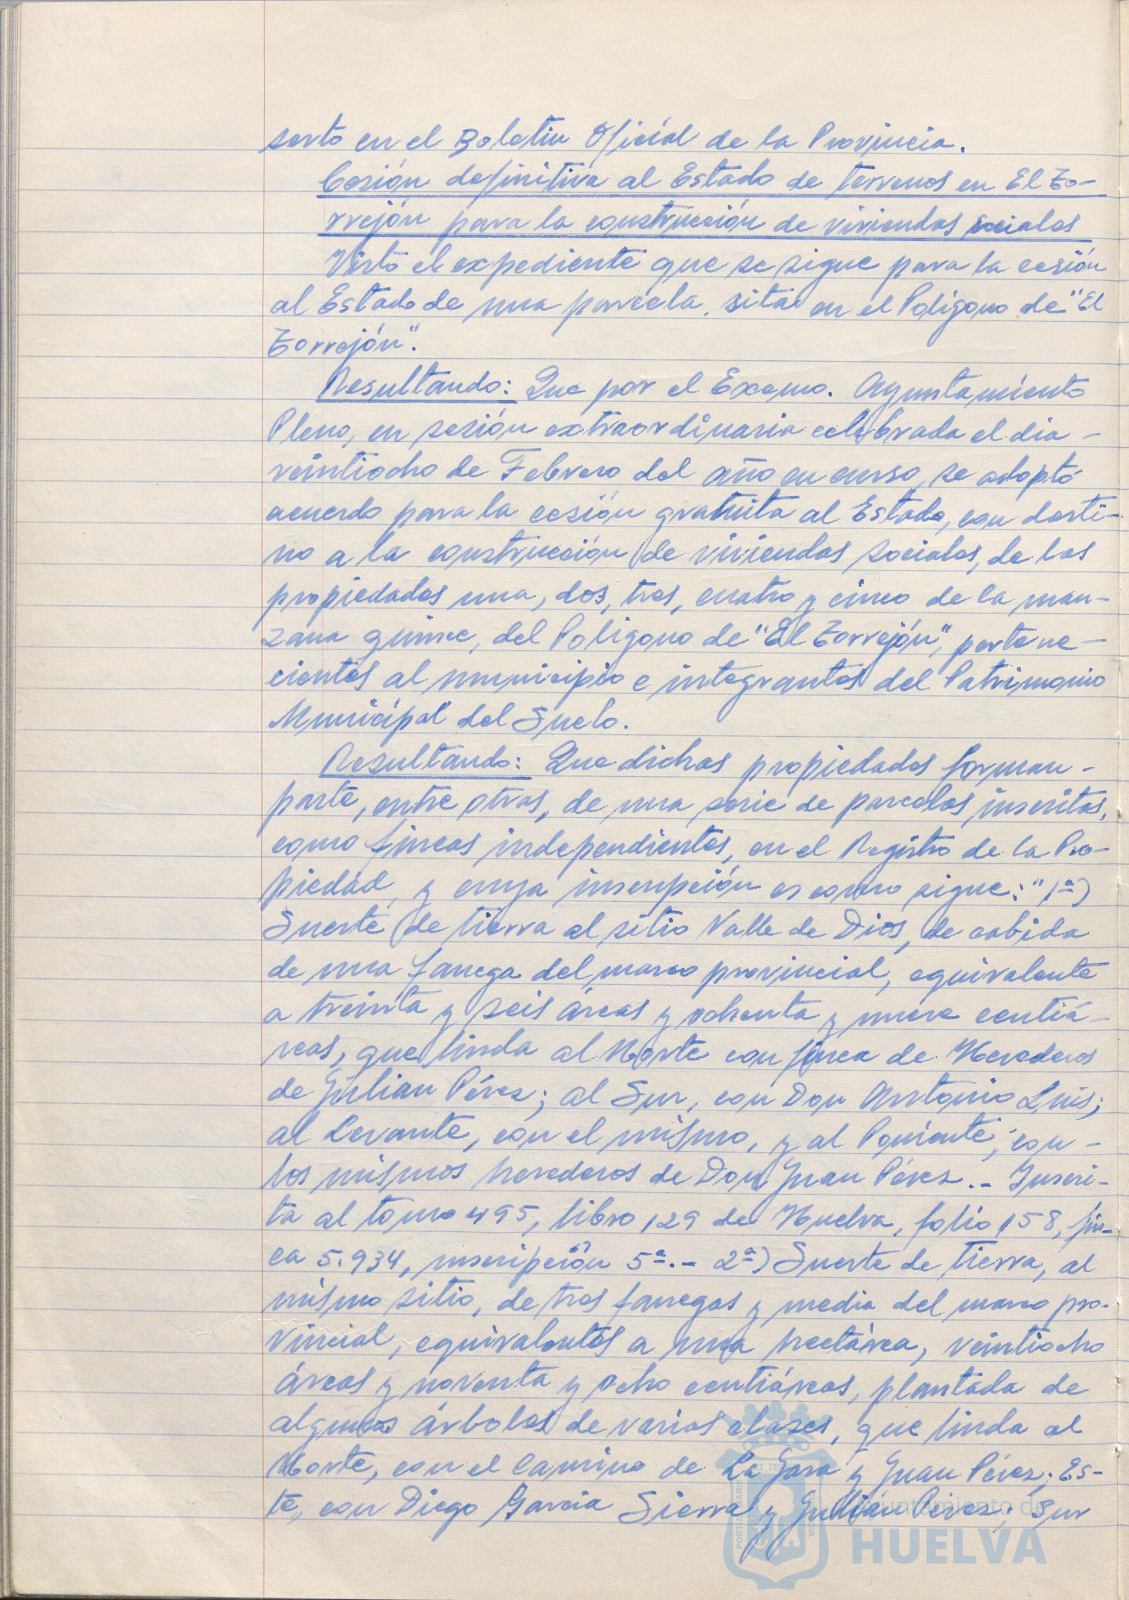 serto en el Boletin Oficial de la Provincia.
Cesión definitiva al Estado de terrenos en El To-
rrejón para la construcción de viviendas sociales
Visto el expediente que se sigue para la cesión
al Estado de una parcela, sita en el Polígono de "El
Torrejón".
Resultando: Que por el Excmo. Ayuntamiento
Pleno, en sesión extraordinaria celebrada el dia -
veintiocho de Febrero del año en curso, se adoptó
acuerdo para la cesión gratuita al Estado, con desti-
no a la construcción de viviendas sociales, de las
propiedades una, dos, tres, cuatro y cinco de la man-
zana quince, del Polígono de "El Torrejón", pertene-
cientes al municipio e integrantes del Patrimonio
Municipal del Suelo.
Resultando: Que dichas propiedades forman -
parte, entre otras, de una serie de parcelas inscritas,
como fincas independientes, en el Registro de la Pro-
piedad, y cuya inscripción es como sigue: "1ª)
Suerte de tierra al sitio Valle de Dios, de cabida
de una fanega del marco provincial, equivalente
a treinta y seis áreas y ochenta y nueve centiá-
reas, que linda al Norte con finca de Herederos
de Julian Pérez; al Sur, con Don Antonio Luis;
al Levante, con el mismo, y al Poniente, con -
los mismos herederos de Don Juan Pérez.- Inscri-
ta al tomo 495, libro 129 de Huelva, folio 158, fin-
ca 5.934, inscripción 5ª.- 2ª) Suerte de tierra, al
mismo sitio, de tres fanegas y media del marco pro-
vincial, equivalentes a una hectárea, veintiocho
áreas y noventa y ocho centiáreas, plantada de
algunos árboles de varias clases, que linda al
Norte, con el Camino de La Gara y Juan Pérez; Es-
te, con Diego Garcia Sierra y Julián Pérez; Sur
Ayuntamiento de
HUELVA